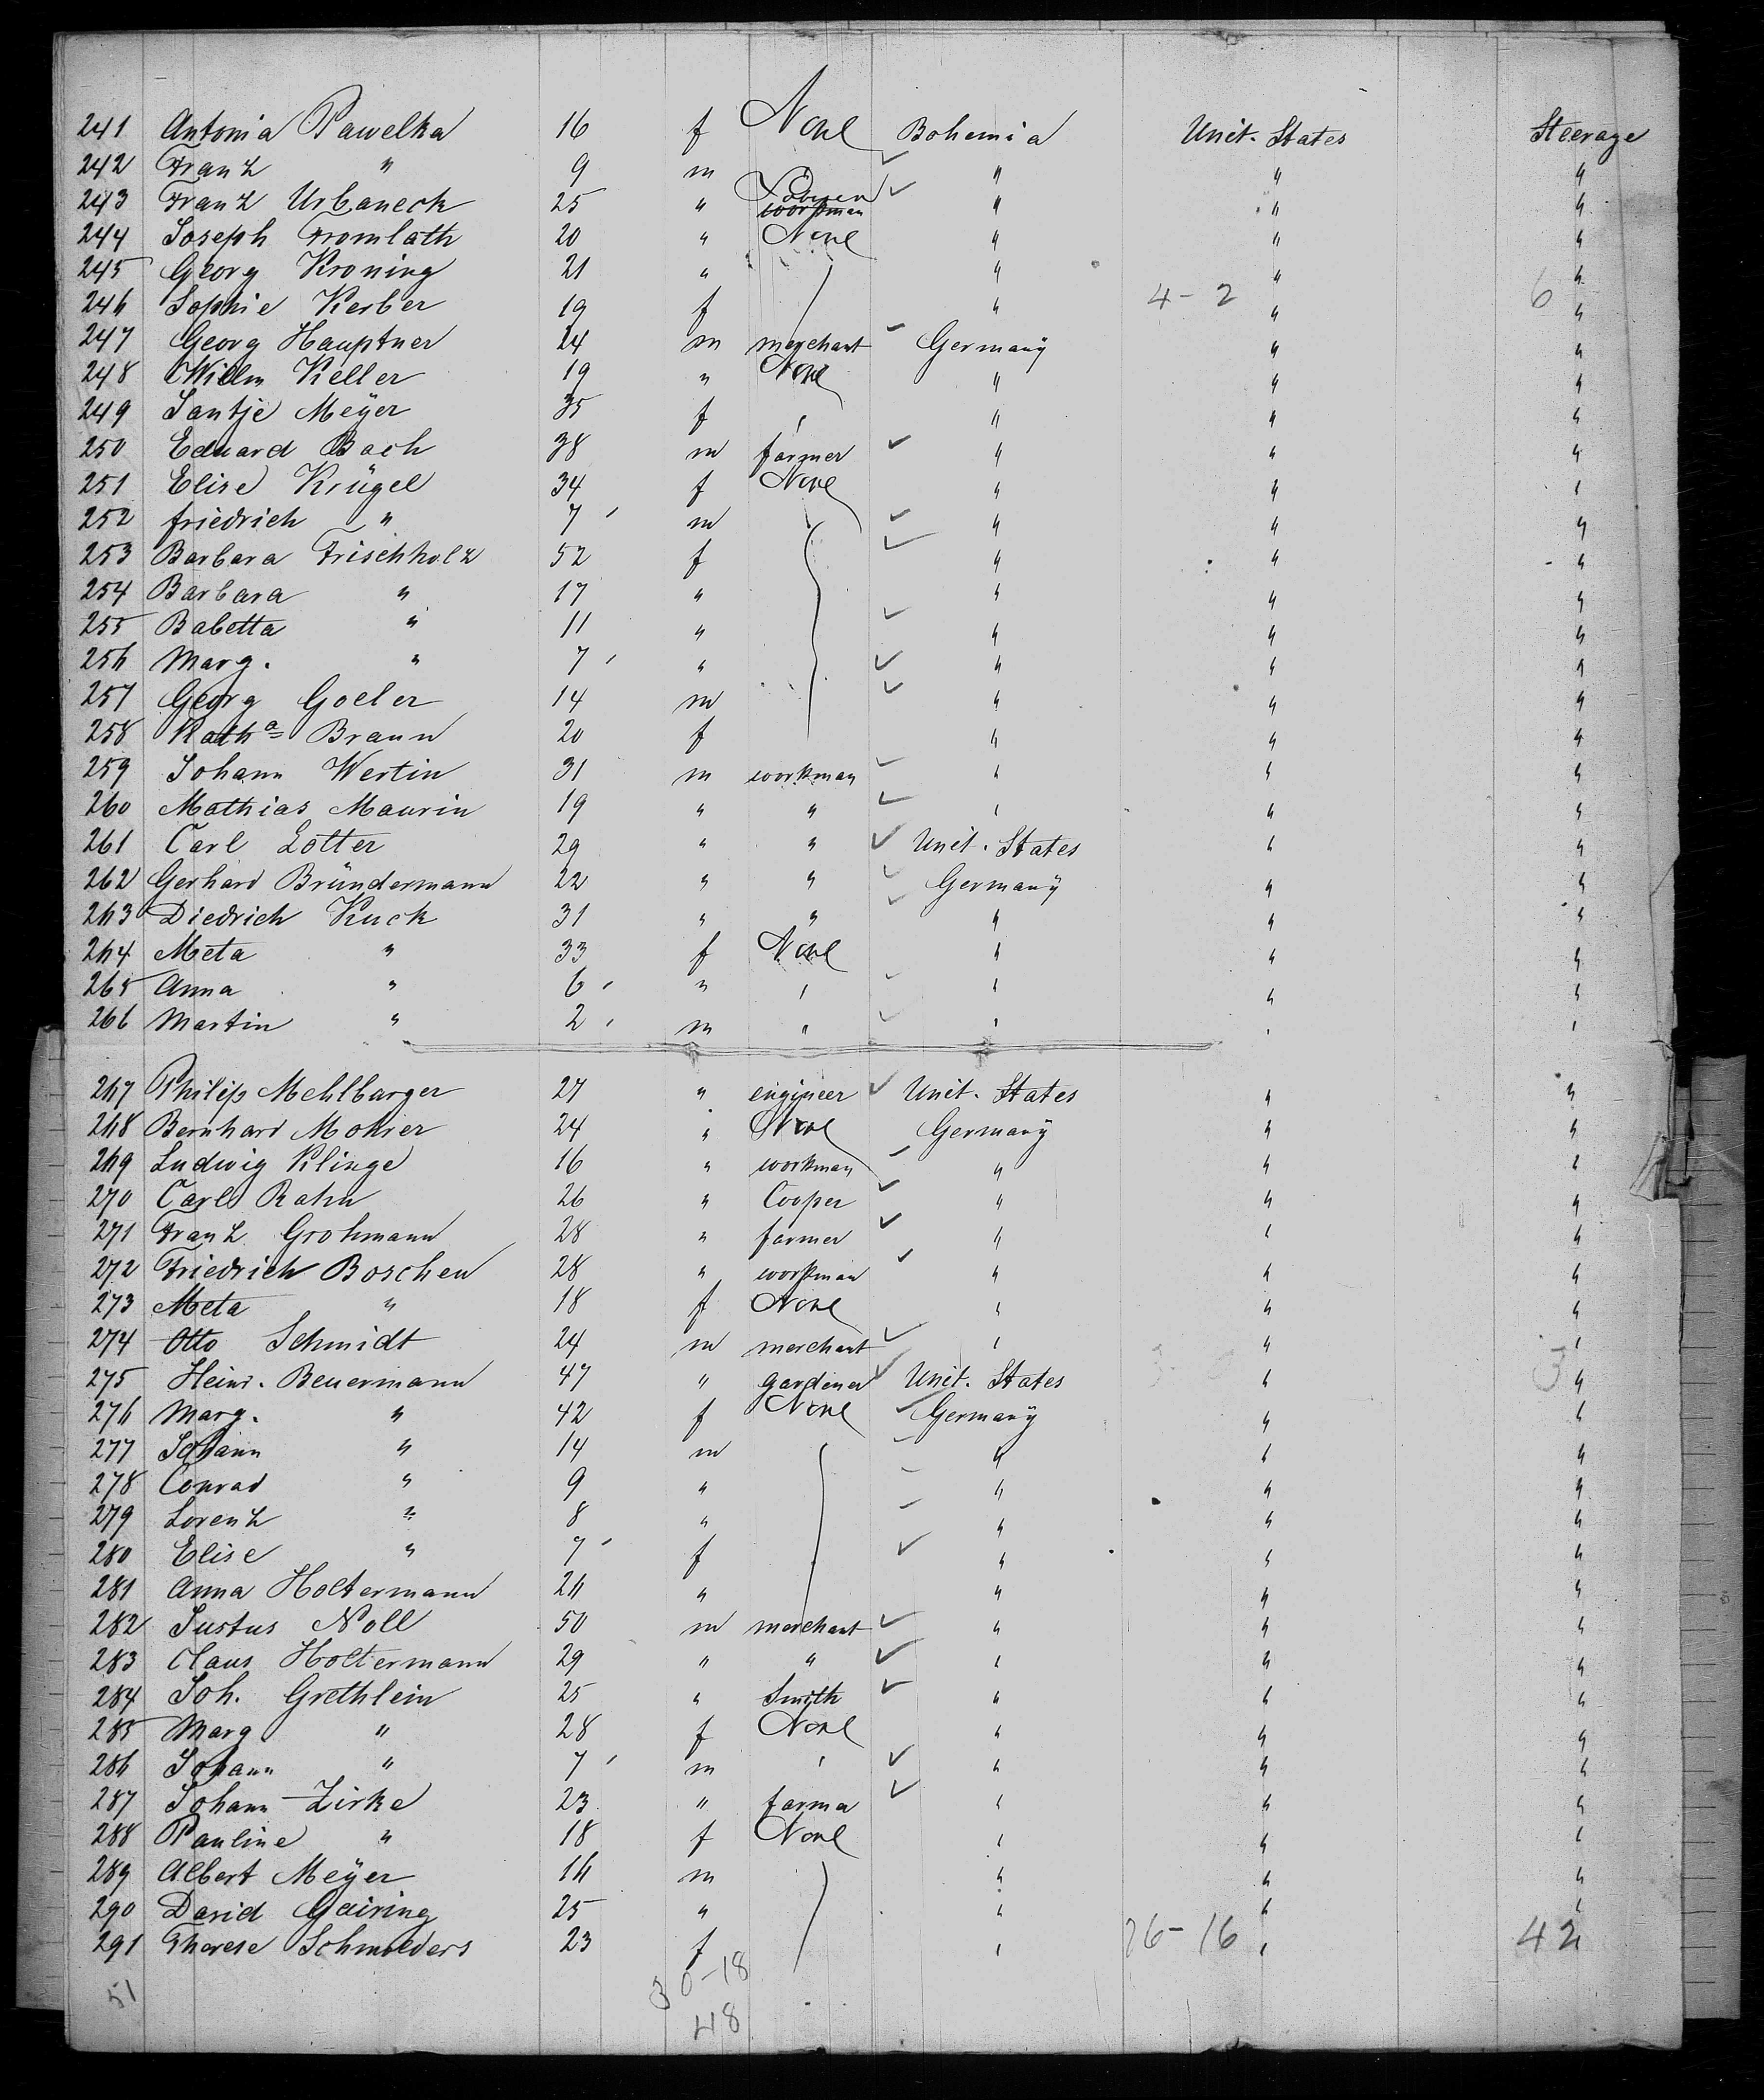 241 Antonia Pawelka 16 f None Bohemia Unit. States Steerage
242 Franz " 9 m " " "
243 Franz Urbaneck 25 " workman " " "
244 Joseph Fromlath 20 " None " " "
245 Georg Kroning 21 " " " "
246 Sophie Kerber 19 f " 4-2 " 6 "
247 Georg Hauptner 24 m merchant Germany " "
248 Wilhm Keller 19 " None " " "
249 Jantje Meÿer 35 f " " " "
250 Eduard Bach 38 m farmer " " "
251 Elise Krügel 34 f None " " "
252 friedrich " 7 m " " "
253 Barbara Frischholz 52 f " " "
254 Barbara " 17 " " " "
255 Babetta " 11 " " " "
256 Marg. " 7 " " " "
257 Georg Goeler 14 m " " "
258 Katha Braun 20 f " " "
259 Johann Wertin 31 m workman " " "
260 Mathias Maurin 19 " " " " "
261 Carl Lotter 29 " " Unit. States " "
262 Gerhard Bründermann 22 " " Germany " "
263 Diedrich Kuck 31 " " " " "
264 Meta " 33 f None " " "
265 Anna " 6 " " " " "
266 Martin " 2 m " " " "
267 Philip Mehlbarger 27 " engineer Unit. States " "
268 Bernhard Mohrer 24 " None Germany " "
269 Ludwig Klinge 16 " workman " " "
270 Carl Rahn 26 " Cooper " " "
271 Franz Grohmann 28 " farmer " " "
272 Friedrich Boschen 28 " workman " " "
273 Meta " 18 f None " " "
274 Otto Schmidt 24 m merchant " " "
275 Heinr. Beuermann 47 " gardener Unit. States " 3 "
276 Marg. " 42 f None Germany " "
277 Johann " 14 m " " "
278 Conrad " 9 " " " "
279 Lorenz " 8 " " " "
280 Elise " 7 f " " "
281 Anna Holtermann 26 " " " "
282 Justus Noll 50 m merchant " " "
283 Claus Holtermann 29 " " " " "
284 Joh. Grethlein 25 " Smith " " "
285 Marg " 28 f None " " "
286 Johann " 7 m " " " "
287 Johann Zirke 23 " farmer " " "
288 Pauline " 18 f None " " "
289 Albert Meÿer 16 m " " "
290 David Gairing 25 " " " "
291 Therese Schmieders 23 f " 26-16 " 42 "
51 30-18
48